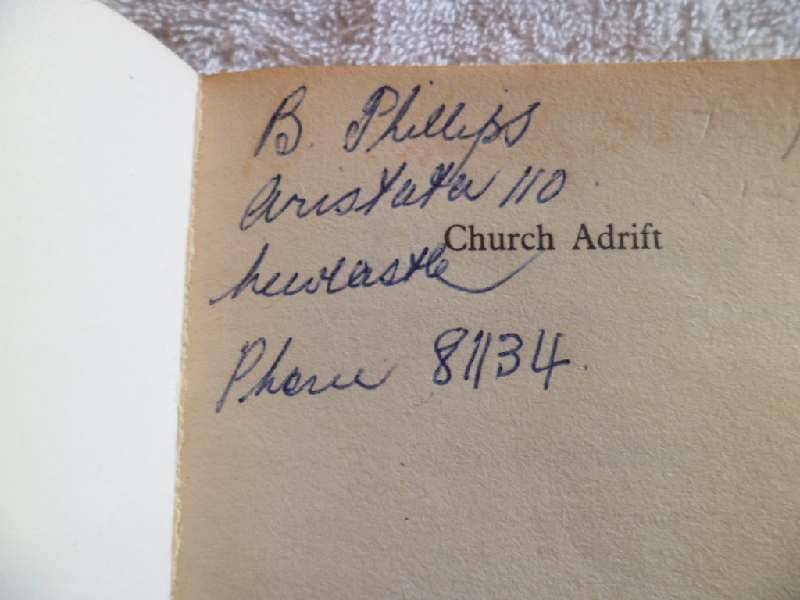 B. Phillips
Aristata 110
Church Adrift
Newcastle
Phone 81134.